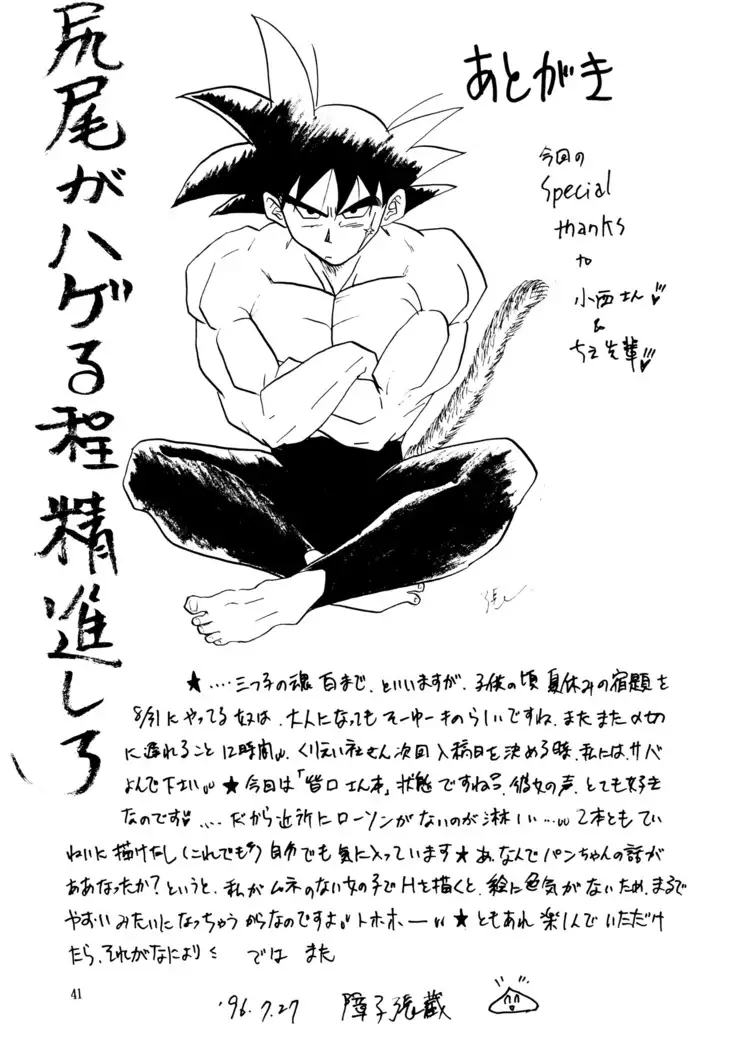 尻尾がハゲる程精進しろ
あとがき
今回の
Special
thanks
to
小西さん
&
ちえ先輩
★‥‥三つ子の魂百まで、といいますが、子供の頃夏休みの宿題を
8/31にやってる奴は、大人になってもそーゆーものらしいですね、またまた〆切
に遅れること12時間、くりえい社さん次回入稿日を決める時、私には、サバ
よんで下さい ★今回は「皆口さん本」状態ですね、彼女の声、とても好き
なのです‥‥だから近所にローソンがないのが淋しい… 2本ともてい
ねいに描けたし(これでも)自分でも気に入っています★あ、なんでパンちゃんの話が
ああなったか?というと、私がムネのない女の子でHを描くと、絵に色気がないため、まるで
やおいみたいになっちゃうからなのですよ トホホー ★ともあれ楽しんでいただけ
たら、それがなにより では また
41
'96.7.27 障子張蔵